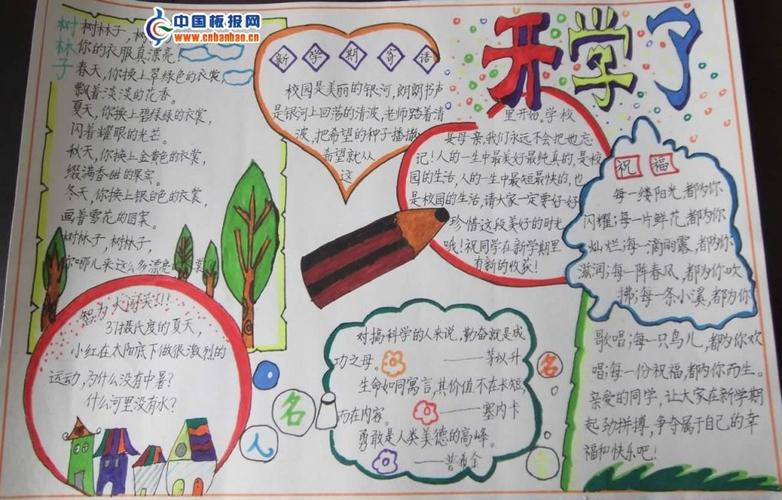 中国板报网
www.cnbanbao.cn
开学了
树林子
树林子,树
你的衣服真漂亮!
春天,你换上翠绿色的衣裳,
飘着淡淡的花香。
夏天,你换上碧绿绿的衣裳,
闪着耀眼的光芒。
秋天,你换上金艳色的衣裳,
缀满香甜的果实。
冬天,你换上银白色的衣裳,
画着雪花的图案。
树林子,树林子,
你哪儿来这么多漂亮的衣裳
新学期寄语
校园是美丽的银河,朗朗书声
是银河上回荡的清波,老师踏着清
波,把希望的种子播撒
希望就从
这
里开始,学校
是母亲,我们永远不会把她忘
记!人的一生中最美好最纯真的,是校
园的生活,人的一生中最短最快的,也
是校园的生活,请大家一定要好好
珍惜这段美好的时光
哦!祝同学在新学期里
有新的收获!
祝福
每一缕阳光,都为你
闪耀;每一片鲜花,都为你
灿烂;每一滴雨露,都为你
滋润;每一阵春风,都为你吹
拂;每一条小溪,都为你
歌唱;每一只鸟儿,都为你欢
唱;每一份祝福,都为你而生。
亲爱的同学,让大家在新学期
起劲拼搏,争夺属于自己的幸
福和快乐吧!
智力大闯关!!!
37摄氏度的夏天,
小红在太阳底下做很激烈的
运动,为什么没有中暑?
什么河里没有水?
名人名言
对搞科学的人来说,勤奋就是成
功之母。
——茅以升
生命如同寓言,其价值不在长短,
而在内容。
——塞内卡
勇敢是人类美德的高峰。
——普希金